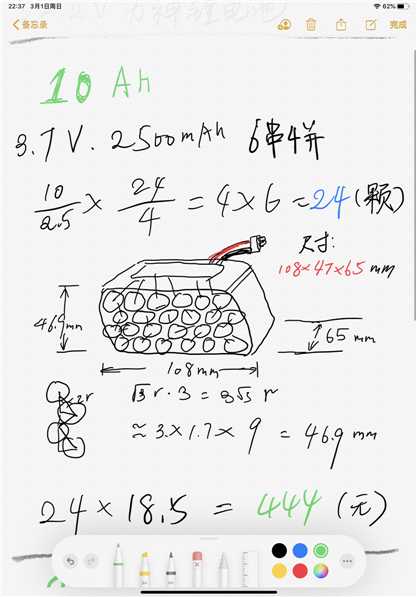 22:37 3月1日周日
62%
备忘录
完成
10 Ah
3.7V. 2500mAh 6串4并
10/2.5 × 24/4 = 4×6 = 24 (颗)
尺寸:
108×47×65 mm
46.9mm
65 mm
108mm
2r
√3 r · 3 = 3√3 r
≈ 3.×1.7× 9 = 46.9 mm
24 × 18.5 = 444 (元)